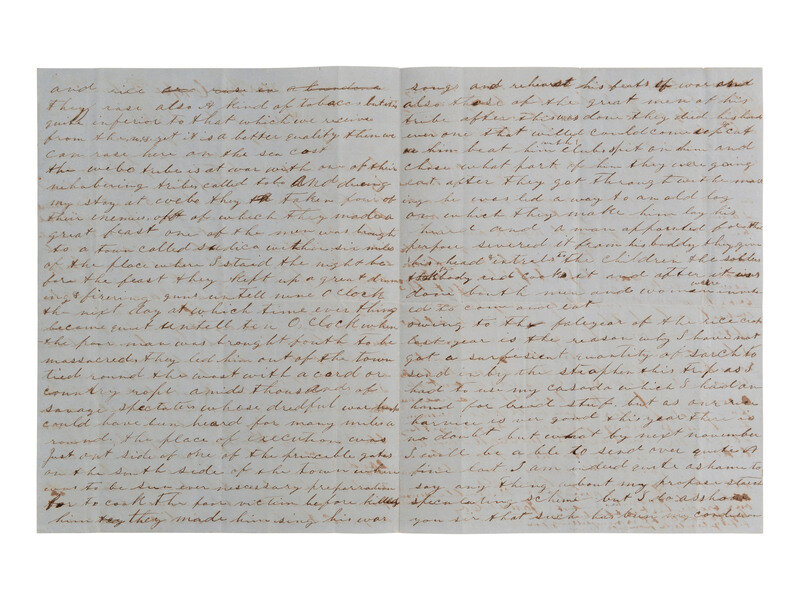 and rice
they rase also A kind of tobacco but is
quite inferior to that which we receive
from the us yet it is a better quality then we
can rase here on the sea cost
the webo tribe is at war with one of their
nehabering tribes called tobo And dureing
my stay at webo they taken four of
their enemies oft of which they made a
great feast one of the men was brough
to a town called with in six miles
of the place where I staid the night be
fore the feast they kept up a great drum
ing & firering guns untell nine O Clock
the next day at which time ever thing
became quiet untell ten O Clock when
the poor man was brought fouth to be
massacred they led him out of the town
tied round the wast with a cord or
country rope amids thousand of
savage spectaters whose dredful war
could have bun heard for many miles a
round, the place of execution was
just out side of one of the princible gates
on the south side of the town where
was to be seen ever necessary preperration
for to cook the poor victim before
him they made him sing his war
songs and rehearst his feats of war and
also those of the great men of his
tribe after this was done they tied his hand
ever one that willed could come up
him beat him with clubs spit on him and
chose what part of him they were going
eat after they got through with
ing he was led a way to an old log
on which they make him lay his
head and a man appointed for the
purpose severed it from his boddy they
his head intrels the children the
boddy and it and after it was
done both men and women were invite
ed to com and eat
owing to the faleyar of the rice crop
last year is the reason why I have not
got a surfiesient quantity of sarch to
send in by the straphen this trip as I
had to use my casada which I had on
hand for bread stuf, but as our rice
harvice is ver good this year ther is
no doubt but what by next november
I will be a ble to send over quite a
fine lot I am indeed quite ashame to
say any thing about my proper
specu lating scheme but I do asshore
you sir that such has bun my condision